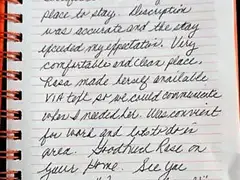 place to stay. Description
was accurate and the stay
exceeded my expectation. Very
comfortable and clean place,
Rosa made herself available
VIA text so we could communicate
when I needed her. Was convient
for work and lots to do in
area. Good
your Home. See You